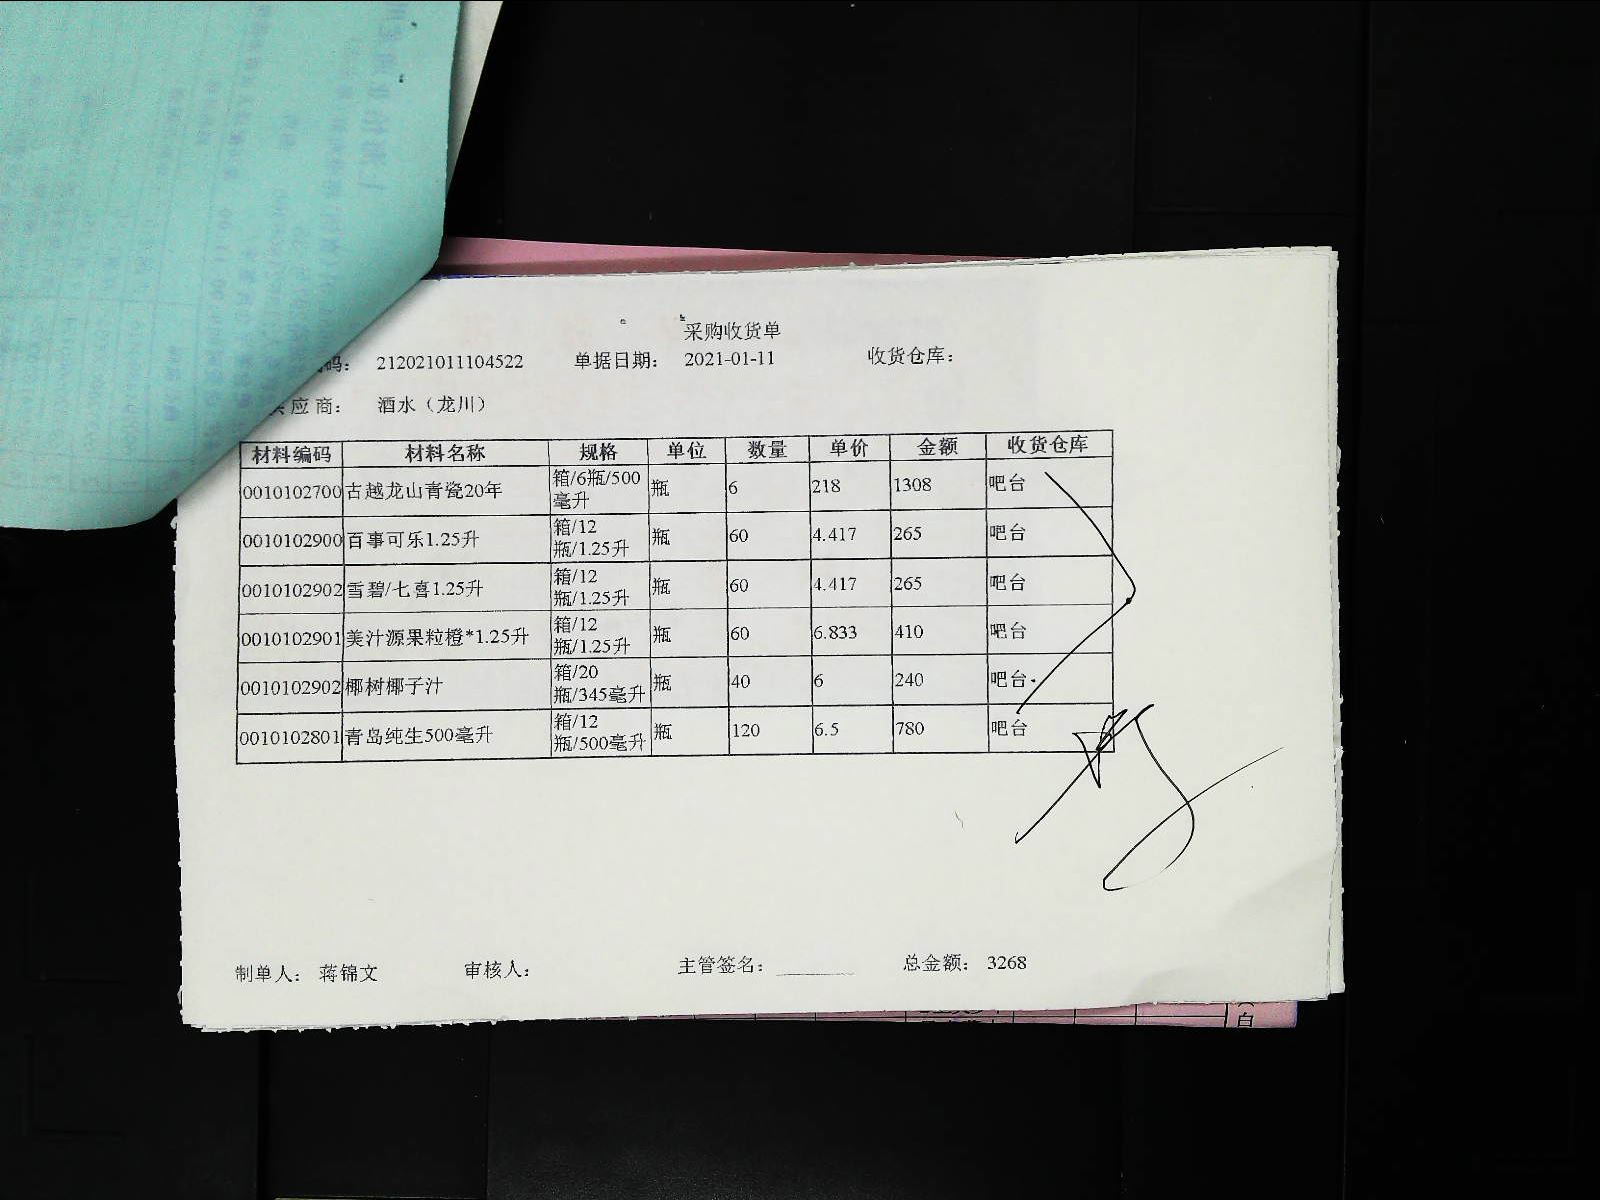 采购收货单
码： 212021011104522 单据日期： 2021-01-11 收货仓库：
供应商： 酒水（龙川）
材料编码 材料名称 规格 单位 数量 单价 金额 收货仓库
0010102700 古越龙山青瓷20年 箱/6瓶/500毫升 瓶 6 218 1308 吧台
0010102900 百事可乐1.25升 箱/12瓶/1.25升 瓶 60 4.417 265 吧台
0010102902 雪碧/七喜1.25升 箱/12瓶/1.25升 瓶 60 4.417 265 吧台
0010102901 美汁源果粒橙*1.25升 箱/12瓶/1.25升 瓶 60 6.833 410 吧台
0010102902 椰树椰子汁 箱/20瓶/345毫升 瓶 40 6 240 吧台
0010102801 青岛纯生500毫升 箱/12瓶/500毫升 瓶 120 6.5 780 吧台
制单人： 蒋锦文 审核人： 主管签名： 总金额： 3268